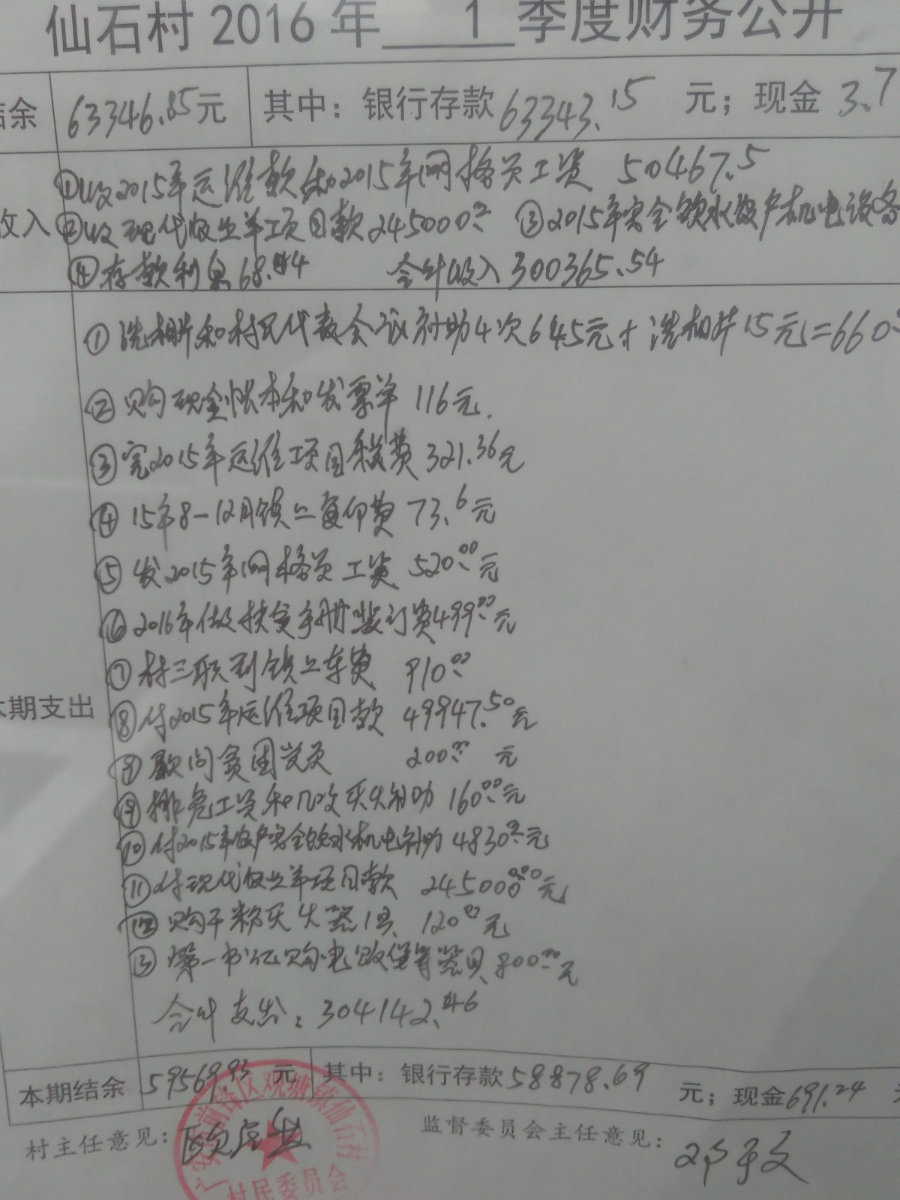 仙石村 2016 年 1 季度财务公开
结余 63346.85元 其中：银行存款63343.15 元；现金 3.7
收入 ①收2015年运维款和2015年网格员工资 50467.5
②收现代牧业羊项目款245000.00 ③2015年安全饮水散户机电设备
④存款利息68.44 合计收入300365.54
①洗相片和村民代表会议补助4次645元+洗相片15元=660
②购现金帐本和发票单 116元.
③完2015年运维项目税费 321.36元
④15年8-12月镇上复印费 73.6元
⑤发2015年网格员工资 520.00元
⑥2016年做扶贫手册装订费499.00元
⑦村三职到镇上车费 910.00
本期支出
⑧付2015年运维项目款 49947.50元
⑧慰问贫困党员 200.00元
⑨排危工资和几次灭火补助 160.00元
⑩付2015年散户安全饮水机电补助 4830.00元
⑪付现代牧业羊项目款 245000.00元
⑫购干粉灭火器1具 120.00元
⑬第一书记购电饭煲等器具 800.00元
合计支出：304142.46
本期结余 59569.93 元 其中：银行存款58878.69 元；现金691.24 元
村主任意见： 监督委员会主任意见：
广安市前锋区观塘镇仙石村
村民委员会